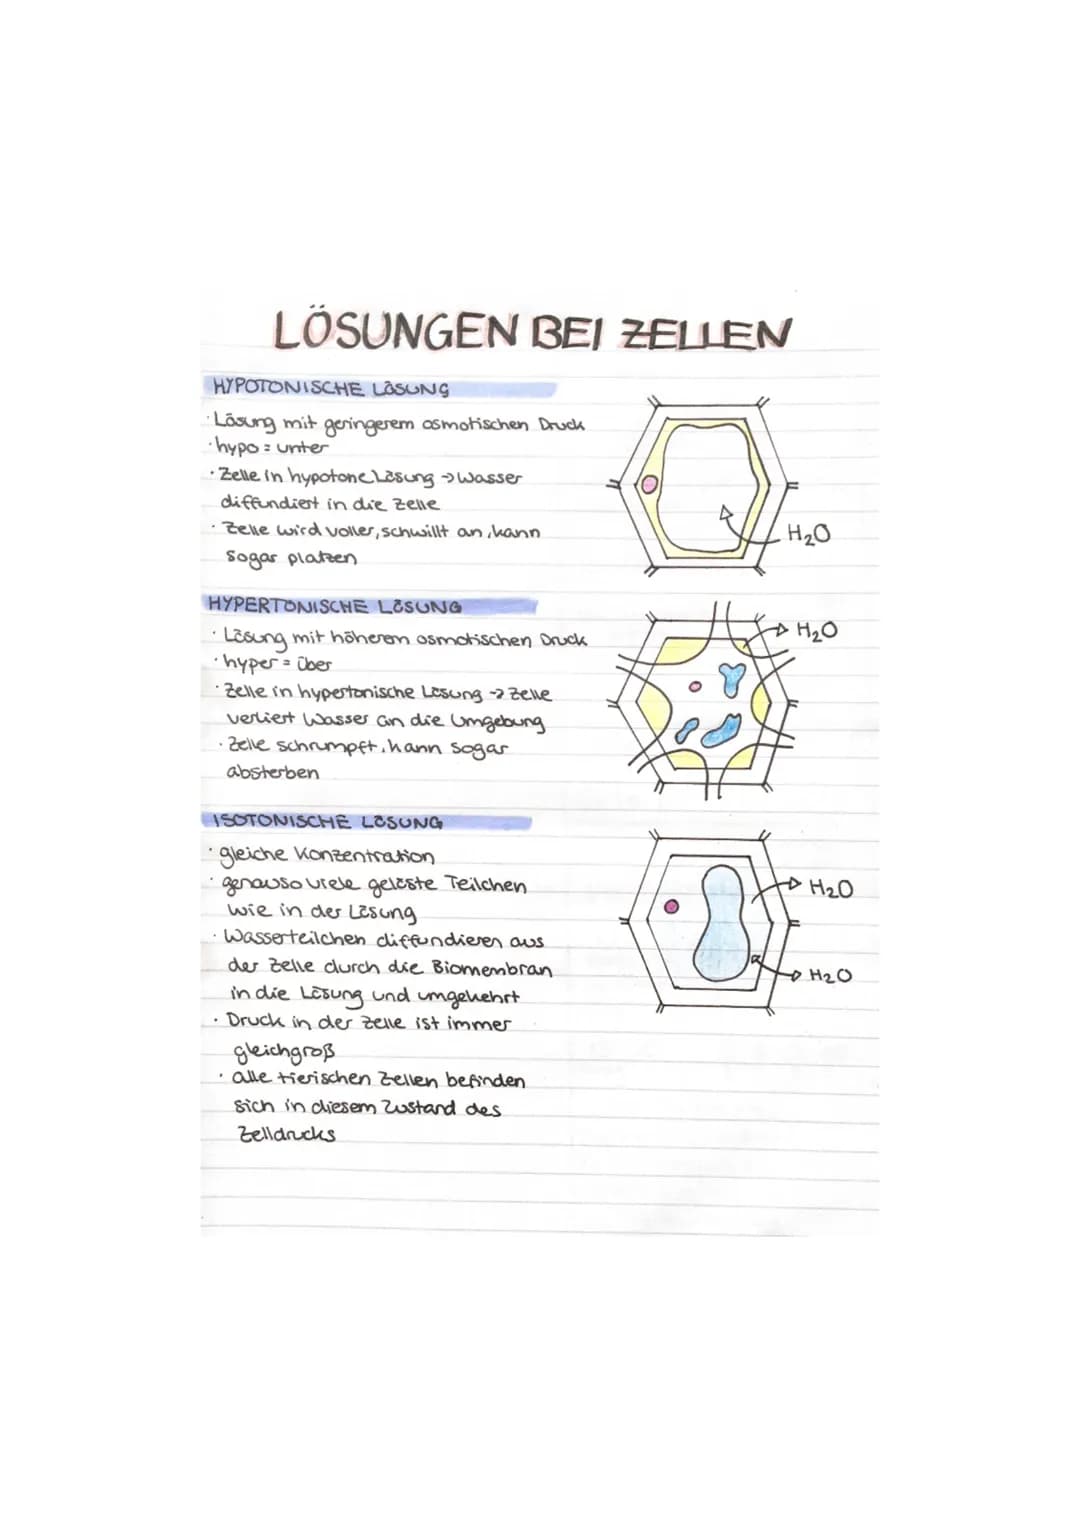 LÖSUNGEN BEI ZELLEN
HYPOTONISCHE LÖSUNG
· Lösung mit geringerem osmotischen Druck
· hypo = unter
· Zelle in hypotone Lösung → Wasser
diffundiert in die Zelle
· Zelle wird voller, schwillt an, kann
sogar platzen
H₂O
HYPERTONISCHE LÖSUNG
· Lösung mit höherem osmotischen Druck
· hyper = über
· Zelle in hypertonische Lösung → Zelle
verliert Wasser an die Umgebung
· Zelle schrumpft, kann sogar
absterben
H₂O
ISOTONISCHE LÖSUNG
· gleiche Konzentration
· genauso viele gelöste Teilchen
wie in der Lösung
· Wasserteilchen diffundieren aus
der Zelle durch die Biomembran
in die Lösung und umgekehrt
· Druck in der Zelle ist immer
gleichgroß
· alle tierischen Zellen befinden
sich in diesem Zustand des
Zelldrucks
H₂O
H₂O